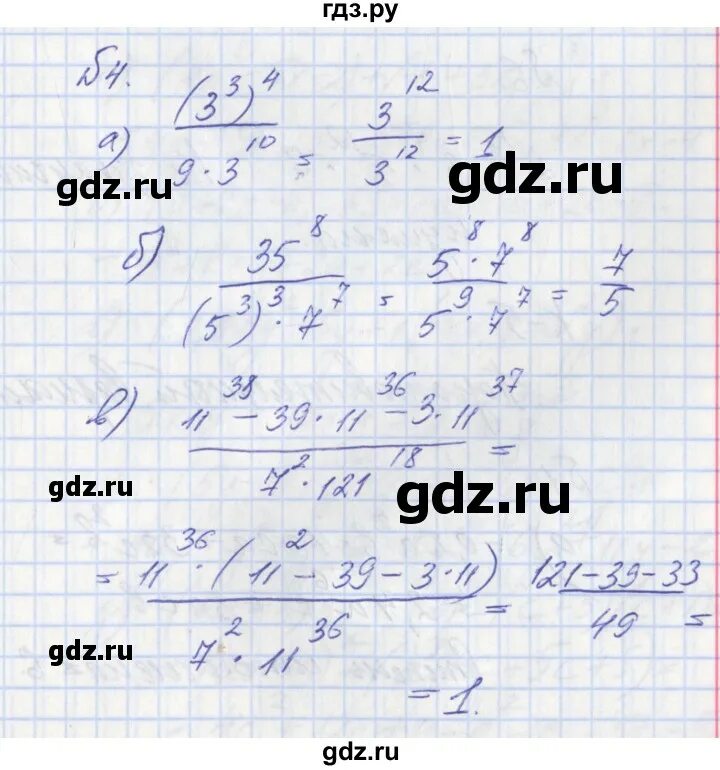 гдз.ру
б4.
а) (3³)⁴ / 9·3¹⁰ = 3¹² / 3¹² = 1
gdz.ru
gdz.ru
б) 35⁸ / (5³)³·7⁷ = 5⁸·7⁸ / 5⁹·7⁷ = 7/5
в) 11³⁸ − 39·11³⁶ − 3·11³⁷ / 7²·121¹⁸ =
gdz.ru
gdz.ru
= 11³⁶·(11² − 39 − 3·11) / 7²·11³⁶ = 121−39−33 / 49 =
gdz.ru
= 1.
gdz.ru
gdz.ru